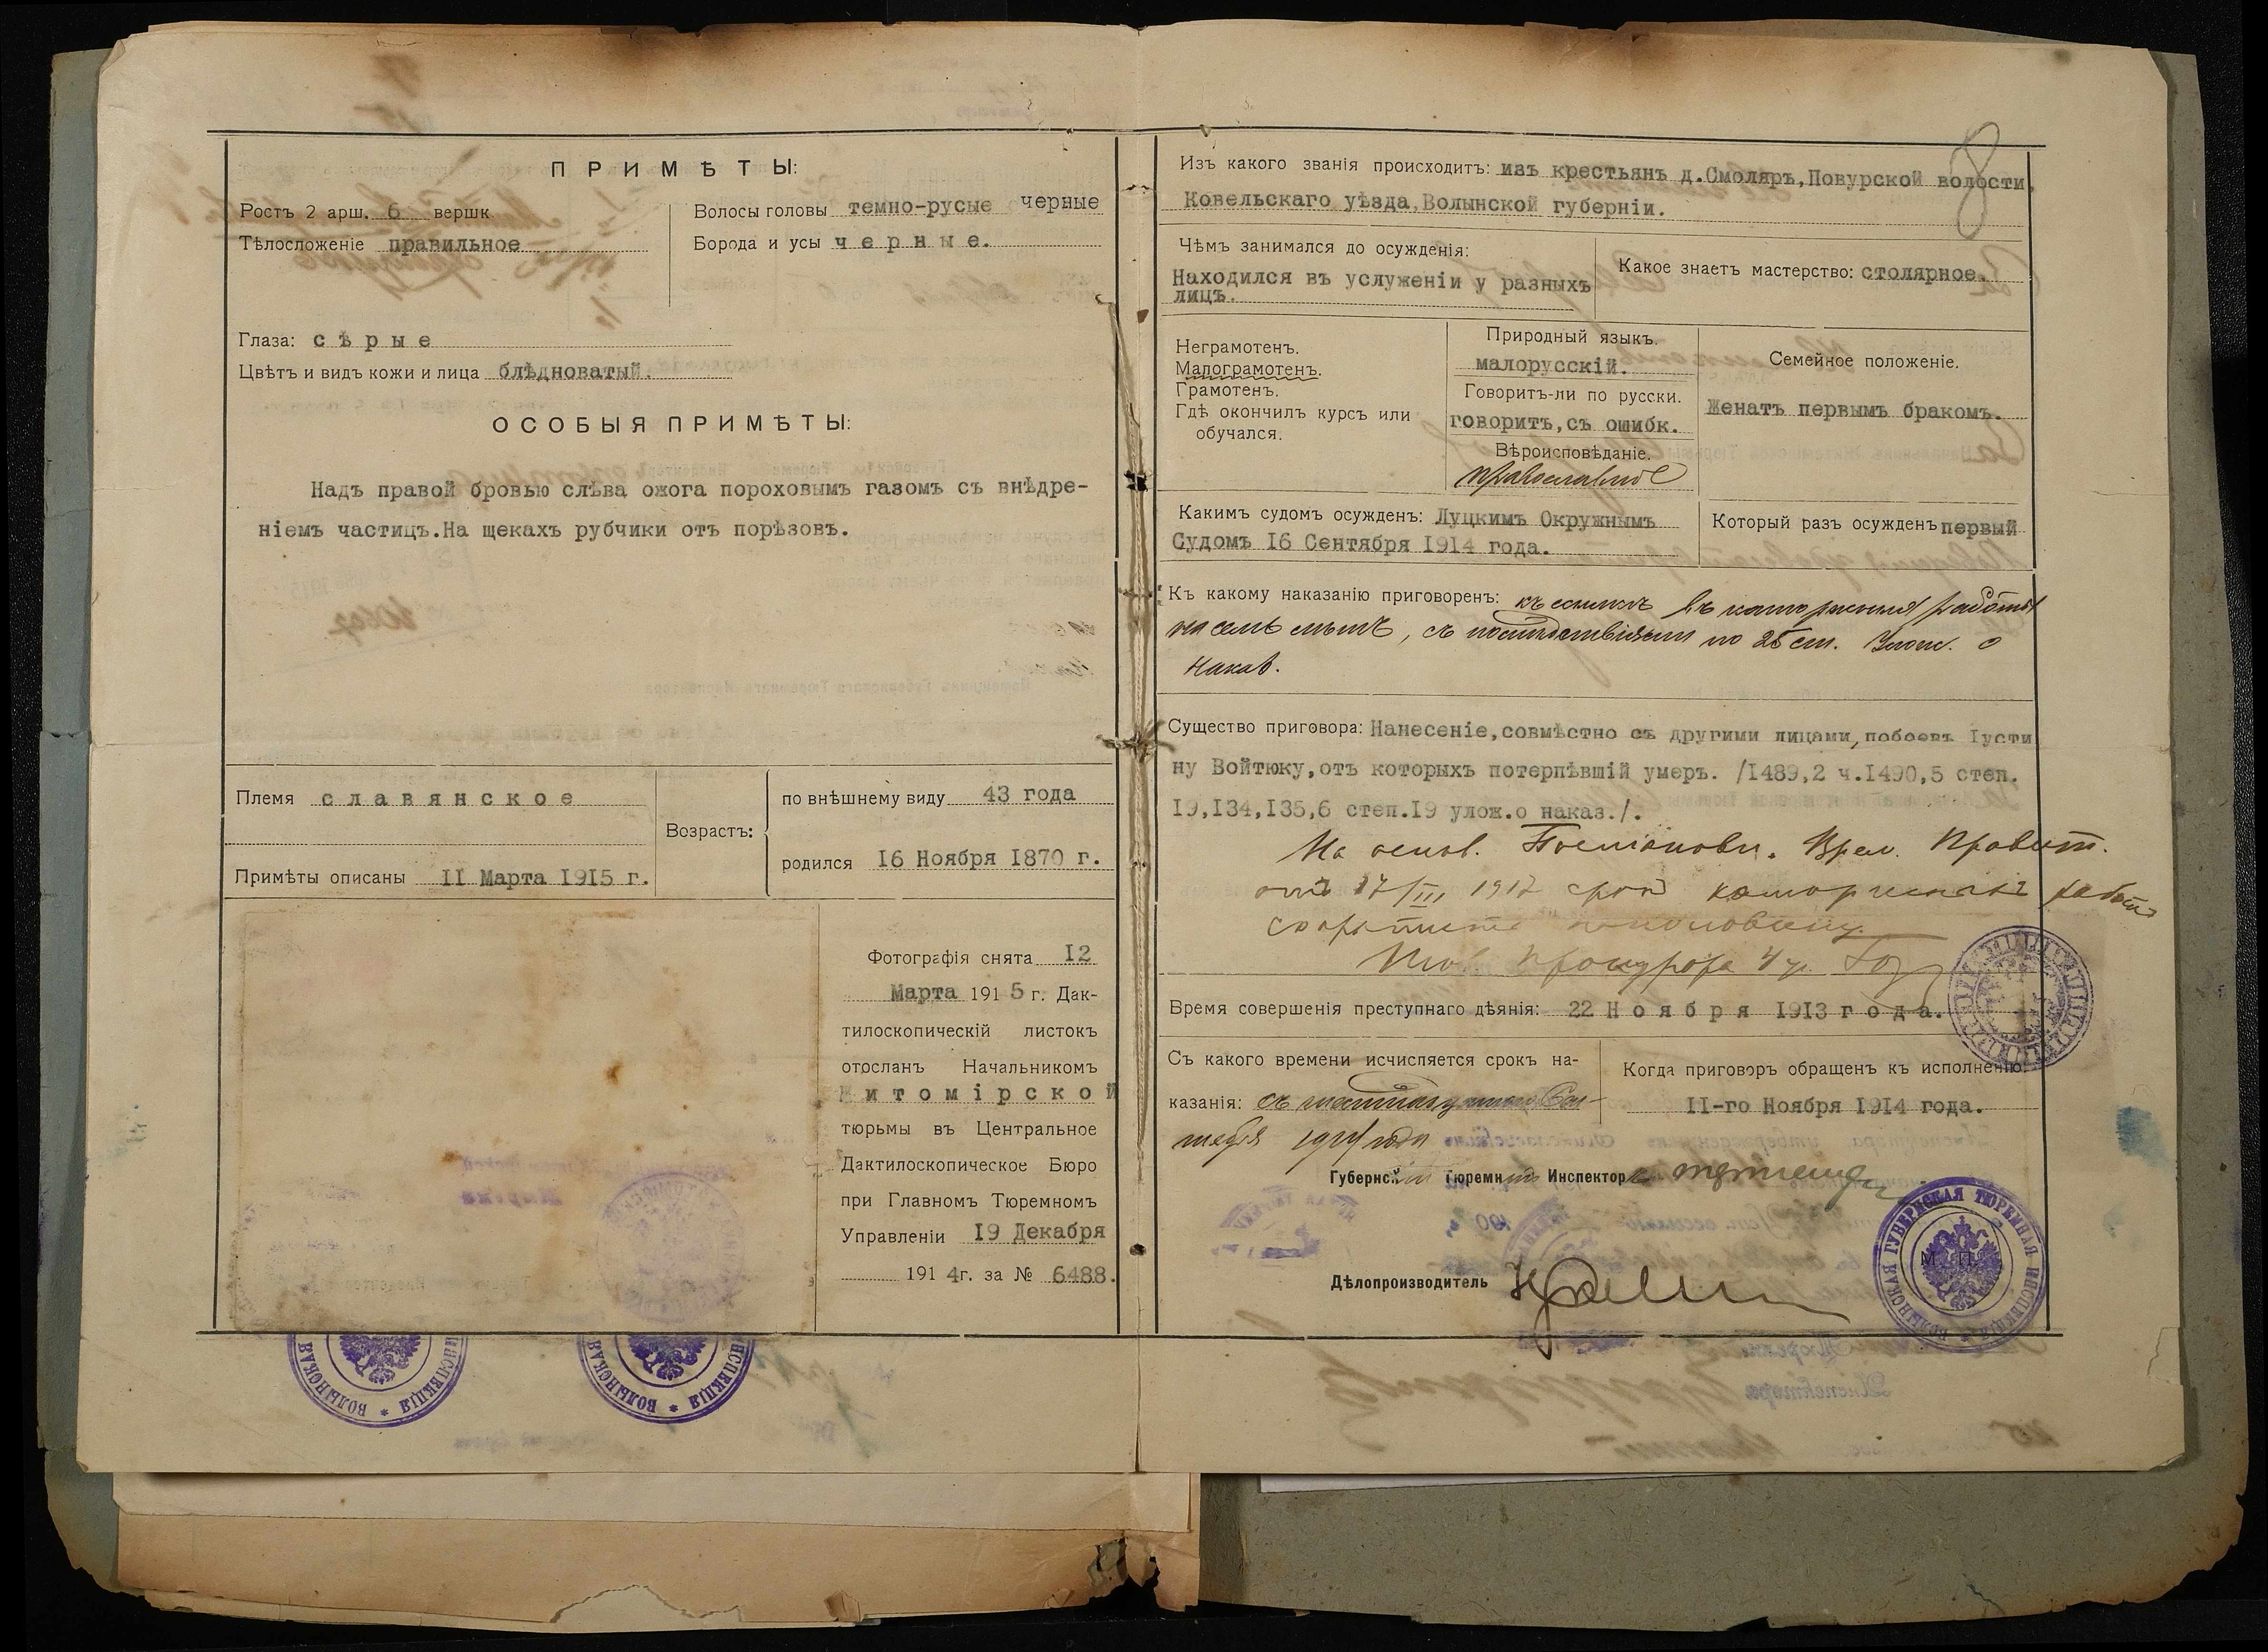 ПРИМѢТЫ:
Ростъ 2 арш. 6 вершк
Тѣлосложеніе правильное
Волосы головы темно-русые черные
Борода и усы черные.
Глаза: сѣрые
Цвѣтъ и видъ кожи и лица блѣдноватый.
ОСОБЫЯ ПРИМѢТЫ:
Надъ правой бровью слѣва ожога пороховымъ газомъ съ внѣдре-
ніемъ частицъ.На щекахъ рубчики отъ порѣзовъ.
Племя славянское
Примѣты описаны 11 Марта 1915 г.
Возрастъ:
по внѣшнему виду 43 года
родился 16 Ноября 1870 г.
Фотографія снята 12
Марта 1915 г. Дак-
тилоскопическій листокъ
отосланъ Начальникомъ
Житомірской
тюрьмы въ Центральное
Дактилоскопическое Бюро
при Главномъ Тюремномъ
Управленіи 19 Декабря
1914г. за № 6488.
ВОЛЫНСКАЯ ИНСПЕКЦІЯ
ВОЛЫНСКАЯ ИНСПЕКЦІЯ
8
Изъ какого званія происходитъ: изъ крестьянъ д.Смоляръ,Повурской волости,
Ковельскаго уѣзда,Волынской губерніи.
Чѣмъ занимался до осужденія:
Находился въ услуженіи у разныхъ
лицъ.
Какое знаетъ мастерство: столярное.
Неграмотенъ.
Малограмотенъ.
Грамотенъ.
Гдѣ окончилъ курсъ или
обучался.
Природный языкъ.
малорусскій.
Говоритъ-ли по русски.
говоритъ,съ ошибк.
Вѣроисповѣданіе.
православное
Семейное положеніе.
Женатъ первымъ бракомъ.
Какимъ судомъ осужденъ: Луцкимъ Окружнымъ
Судомъ 16 Сентября 1914 года.
Который разъ осужденъ первый
Къ какому наказанію приговоренъ: къ ссылкѣ въ каторжныя работы
на семь лѣтъ, съ послѣдствіями по 25 ст. Улож. о
наказ.
Существо приговора: Нанесеніе,совмѣстно съ другими лицами,побоевъ Іусти
ну Войтюку,отъ которыхъ потерпѣвшій умеръ. /1489,2 ч.1490,5 степ.
19,134,135,6 степ.19 улож.о наказ./.
На основ. Постановл. Врем. Правит.
отъ 17/III 1917 срокъ каторжныхъ работъ
сократить на половину.
Тов. Прокурора
Время совершенія преступнаго дѣянія: 22 Ноября 1913 года.
Съ какого времени исчисляется срокъ на-
казанія: съ шестнадцатаго Сен-
тября 1914 года
Когда приговоръ обращенъ къ исполненію:
11-го Ноября 1914 года.
Губернскій Тюремный Инспекторъ
Дѣлопроизводитель
ВОЛЫНСКАЯ ГУБЕРНСКАЯ ТЮРЕМНАЯ ИНСПЕКЦІЯ
М. П.